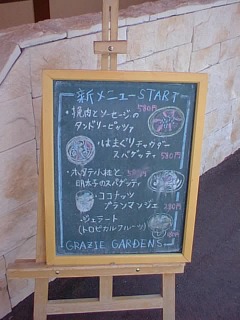 新メニューSTART
・焼肉とソーセージの
タンドリーピッツァ
580円
・はまぐりチャウダー
スパゲッティ 580円
・ホタテ貝柱と
明太子のスパゲッティ
・ココナッツ
ブランマンジェ
280円
・ジェラート
(トロピカルフルーツ)
GRAZIE GARDENS